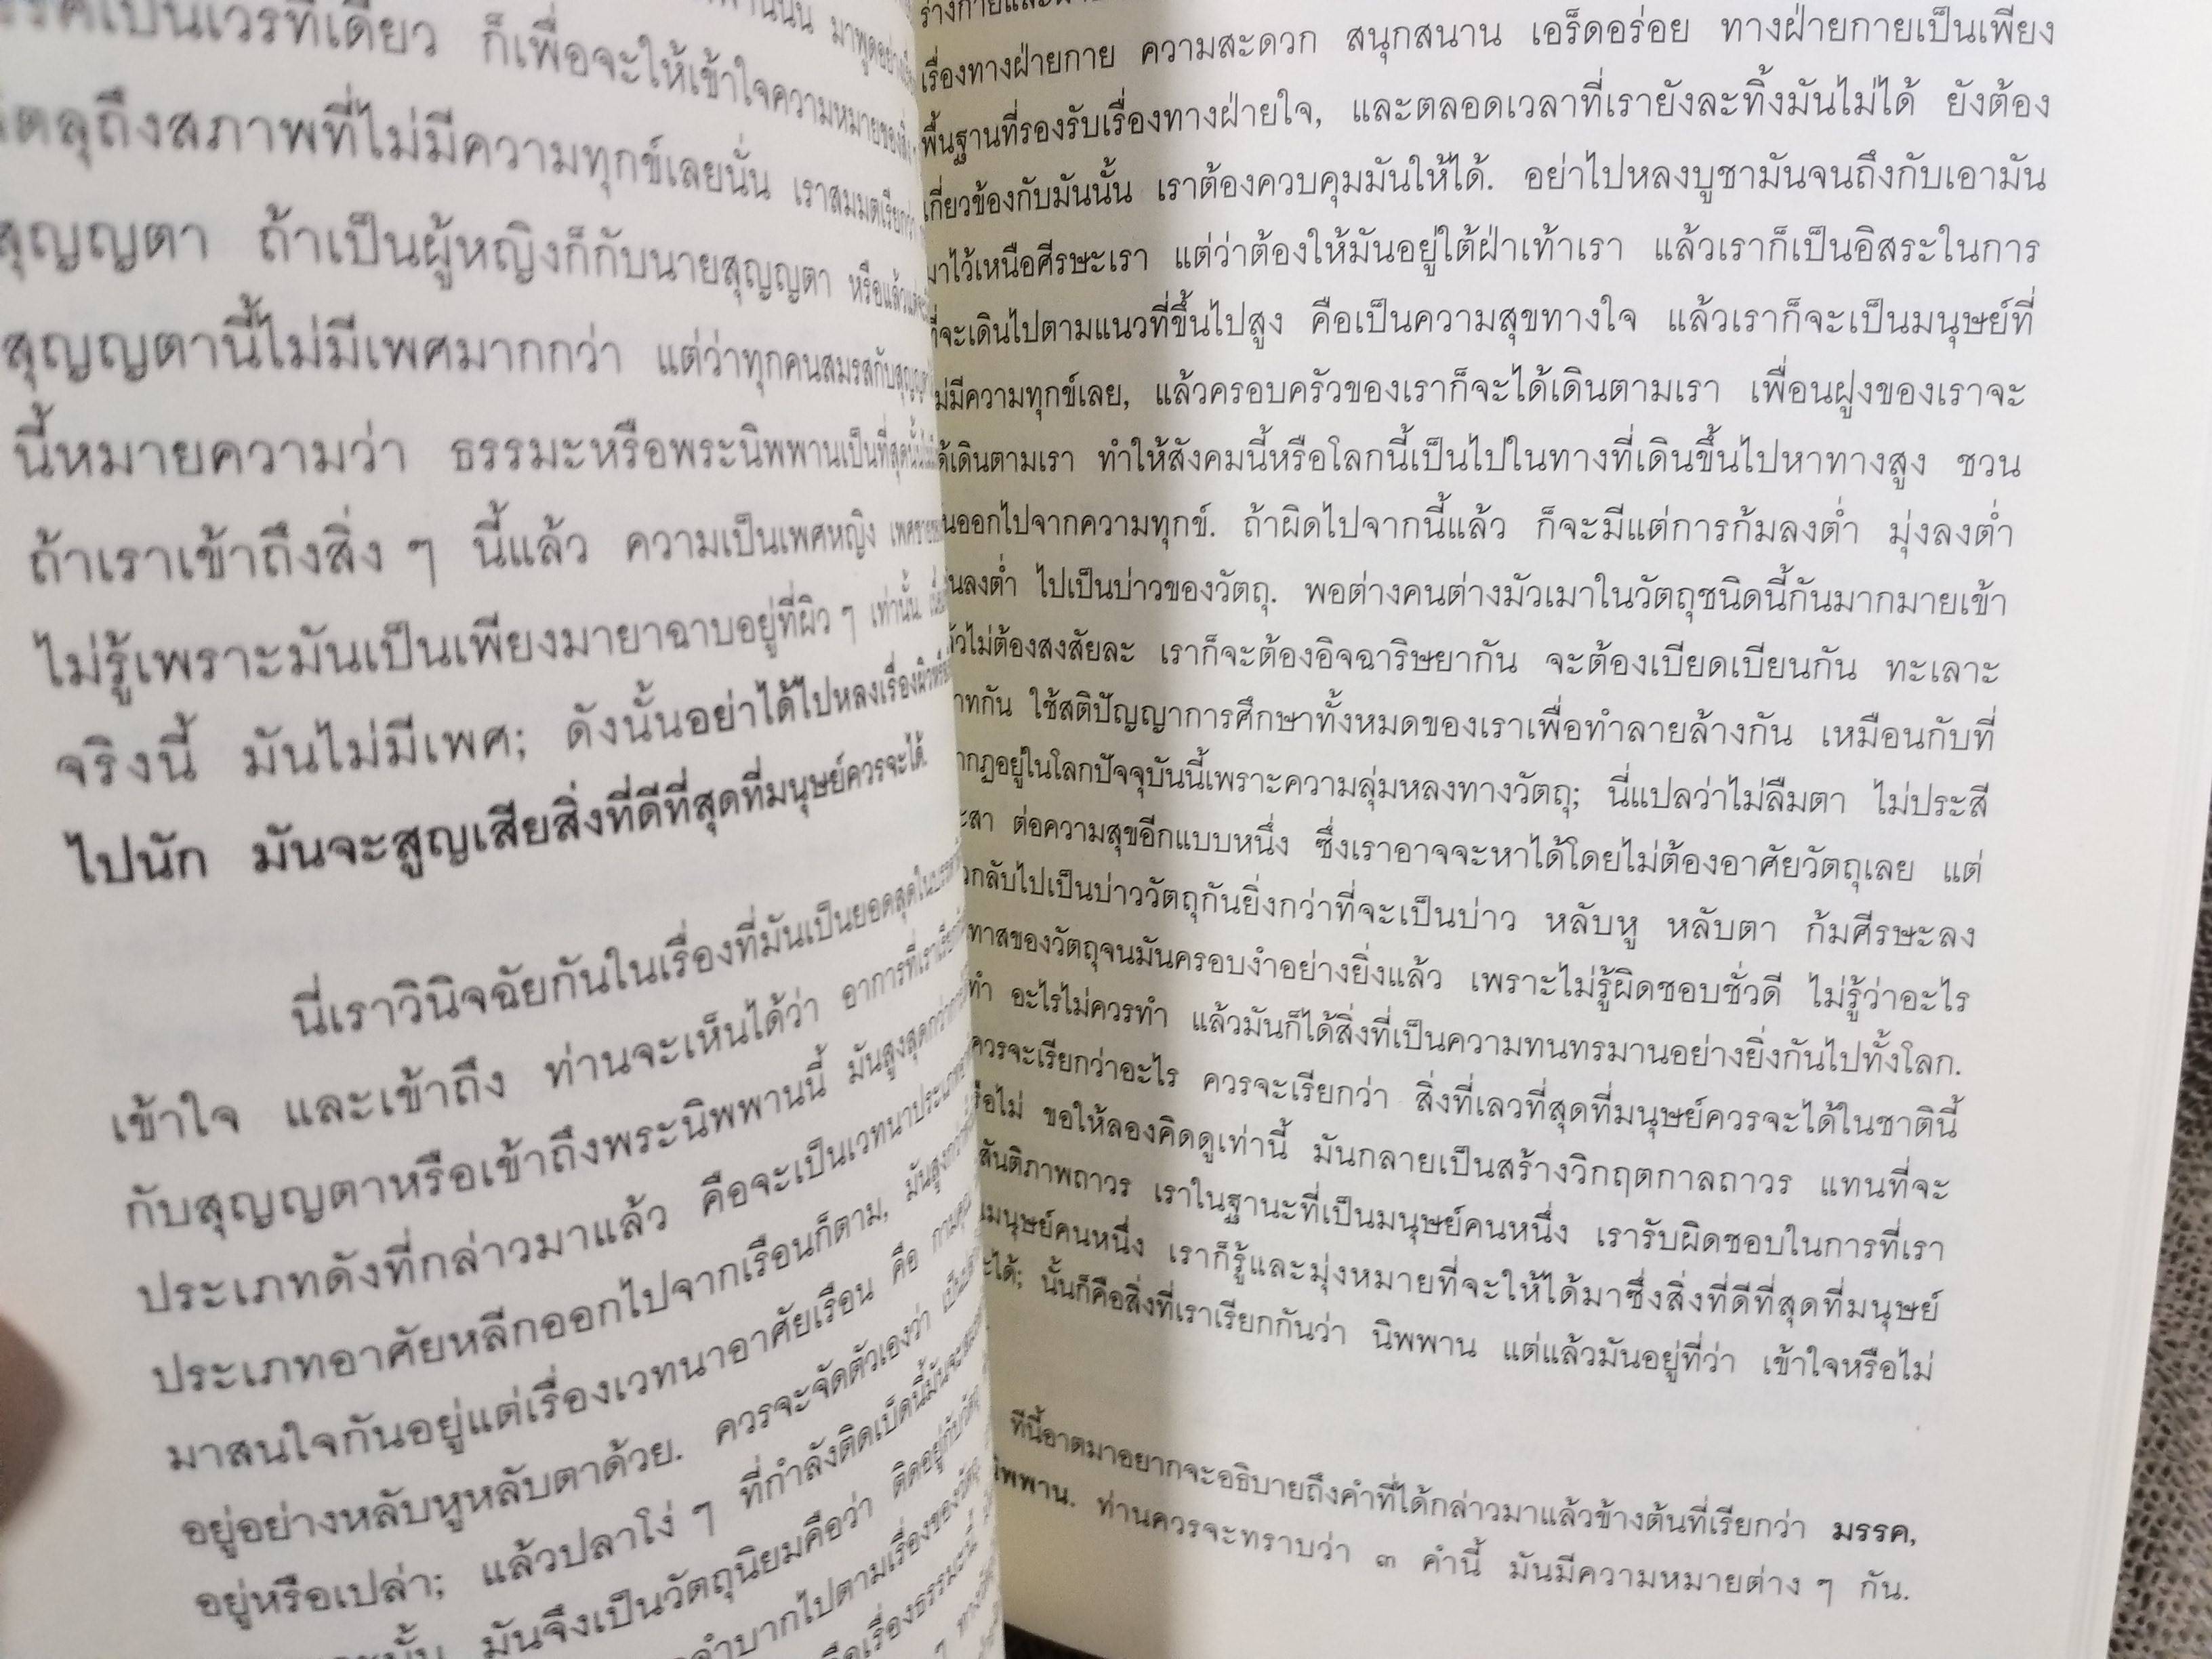 ก็เพื่อจะให้เข้าใจความหมายของ
ถึงสภาพที่ไม่มีความทุกข์เลยนั่น เราสมมตเรียกว่า
สุญญตา ถ้าเป็นผู้หญิงก็กับนายสุญญตา
สุญญตานี้ไม่มีเพศมากกว่า แต่ว่าทุกคนสมรสกับ
นี้หมายความว่า ธรรมะหรือพระนิพพานเป็นที่สุด
ถ้าเราเข้าถึงสิ่ง ๆ นี้แล้ว ความเป็นเพศหญิง
ไม่รู้เพราะมันเป็นเพียงมายาฉาบอยู่ที่ผิว ๆ เท่านั้น
จริงนี้ มันไม่มีเพศ; ดังนั้นอย่าได้ไปหลงเรื่อง
ไปนัก มันจะสูญเสียสิ่งที่ดีที่สุดที่มนุษย์ควรจะได้
นี่เราวินิจฉัยกันในเรื่องที่มันเป็นยอดสุดใน
เข้าใจ และเข้าถึง ท่านจะเห็นได้ว่า อาการที่เราเรียก
กับสุญญตาหรือเข้าถึงพระนิพพานนี้ มันสูงสุดกว่า
ประเภทดังที่กล่าวมาแล้ว คือจะเป็นเวทนาประเภท
ประเภทอาศัยหลีกออกไปจากเรือนก็ตาม, มันสูงกว่า
มาสนใจกันอยู่แต่เรื่องเวทนาอาศัยเรือน คือ กามคุณ
อยู่อย่างหลับหูหลับตาด้วย. ควรจะจัดตัวเองว่า
อยู่หรือเปล่า; แล้วปลาโง่ ๆ ที่กำลังติดเบ็ดนี้มันจะ
มันจึงเป็นวัตถุนิยมคือว่า ติดอยู่กับวัตถุ
ไปตามเรื่องของวัตถุ
เรื่องธรรมะนี้
เรื่องทางฝ่ายกาย ความสะดวก สนุกสนาน เอร็ดอร่อย ทางฝ่ายกายเป็นเพียง
พื้นฐานที่รองรับเรื่องทางฝ่ายใจ, และตลอดเวลาที่เรายังละทิ้งมันไม่ได้ ยังต้อง
เกี่ยวข้องกับมันนั้น เราต้องควบคุมมันให้ได้. อย่าไปหลงบูชามันจนถึงกับเอามัน
มาไว้เหนือศีรษะเรา แต่ว่าต้องให้มันอยู่ใต้ฝ่าเท้าเรา แล้วเราก็เป็นอิสระในการ
ที่จะเดินไปตามแนวที่ขึ้นไปสูง คือเป็นความสุขทางใจ แล้วเราก็จะเป็นมนุษย์ที่
ไม่มีความทุกข์เลย, แล้วครอบครัวของเราก็จะได้เดินตามเรา เพื่อนฝูงของเราจะ
ได้เดินตามเรา ทำให้สังคมนี้หรือโลกนี้เป็นไปในทางที่เดินขึ้นไปหาทางสูง ชวน
กันออกไปจากความทุกข์. ถ้าผิดไปจากนี้แล้ว ก็จะมีแต่การก้มลงต่ำ มุ่งลงต่ำ
กันลงต่ำ ไปเป็นบ่าวของวัตถุ. พอต่างคนต่างมัวเมาในวัตถุชนิดนี้กันมากมายเข้า
แล้วไม่ต้องสงสัยละ เราก็จะต้องอิจฉาริษยากัน จะต้องเบียดเบียนกัน ทะเลาะ
วาทกัน ใช้สติปัญญาการศึกษาทั้งหมดของเราเพื่อทำลายล้างกัน เหมือนกับที่
รากฏอยู่ในโลกปัจจุบันนี้เพราะความลุ่มหลงทางวัตถุ; นี่แปลว่าไม่ลืมตา ไม่ประสี
ะสา ต่อความสุขอีกแบบหนึ่ง ซึ่งเราอาจจะหาได้โดยไม่ต้องอาศัยวัตถุเลย แต่
กลับไปเป็นบ่าววัตถุกันยิ่งกว่าที่จะเป็นบ่าว หลับหู หลับตา ก้มศีรษะลง
ทาสของวัตถุจนมันครอบงำอย่างยิ่งแล้ว เพราะไม่รู้ผิดชอบชั่วดี ไม่รู้ว่าอะไร
ทำ อะไรไม่ควรทำ แล้วมันก็ได้สิ่งที่เป็นความทนทรมานอย่างยิ่งกันไปทั้งโลก.
ควรจะเรียกว่าอะไร ควรจะเรียกว่า สิ่งที่เลวที่สุดที่มนุษย์ควรจะได้ในชาตินี้
รือไม่ ขอให้ลองคิดดูเท่านี้ มันกลายเป็นสร้างวิกฤตกาลถาวร แทนที่จะ
สันติภาพถาวร เราในฐานะที่เป็นมนุษย์คนหนึ่ง เรารับผิดชอบในการที่เรา
นมนุษย์คนหนึ่ง เราก็รู้และมุ่งหมายที่จะให้ได้มาซึ่งสิ่งที่ดีที่สุดที่มนุษย์
ะได้; นั้นก็คือสิ่งที่เราเรียกกันว่า นิพพาน แต่แล้วมันอยู่ที่ว่า เข้าใจหรือไม่
ทีนี้อาตมาอยากจะอธิบายถึงคำที่ได้กล่าวมาแล้วข้างต้นที่เรียกว่า มรรค,
นิพพาน. ท่านควรจะทราบว่า ๓ คำนี้ มันมีความหมายต่าง ๆ กัน.